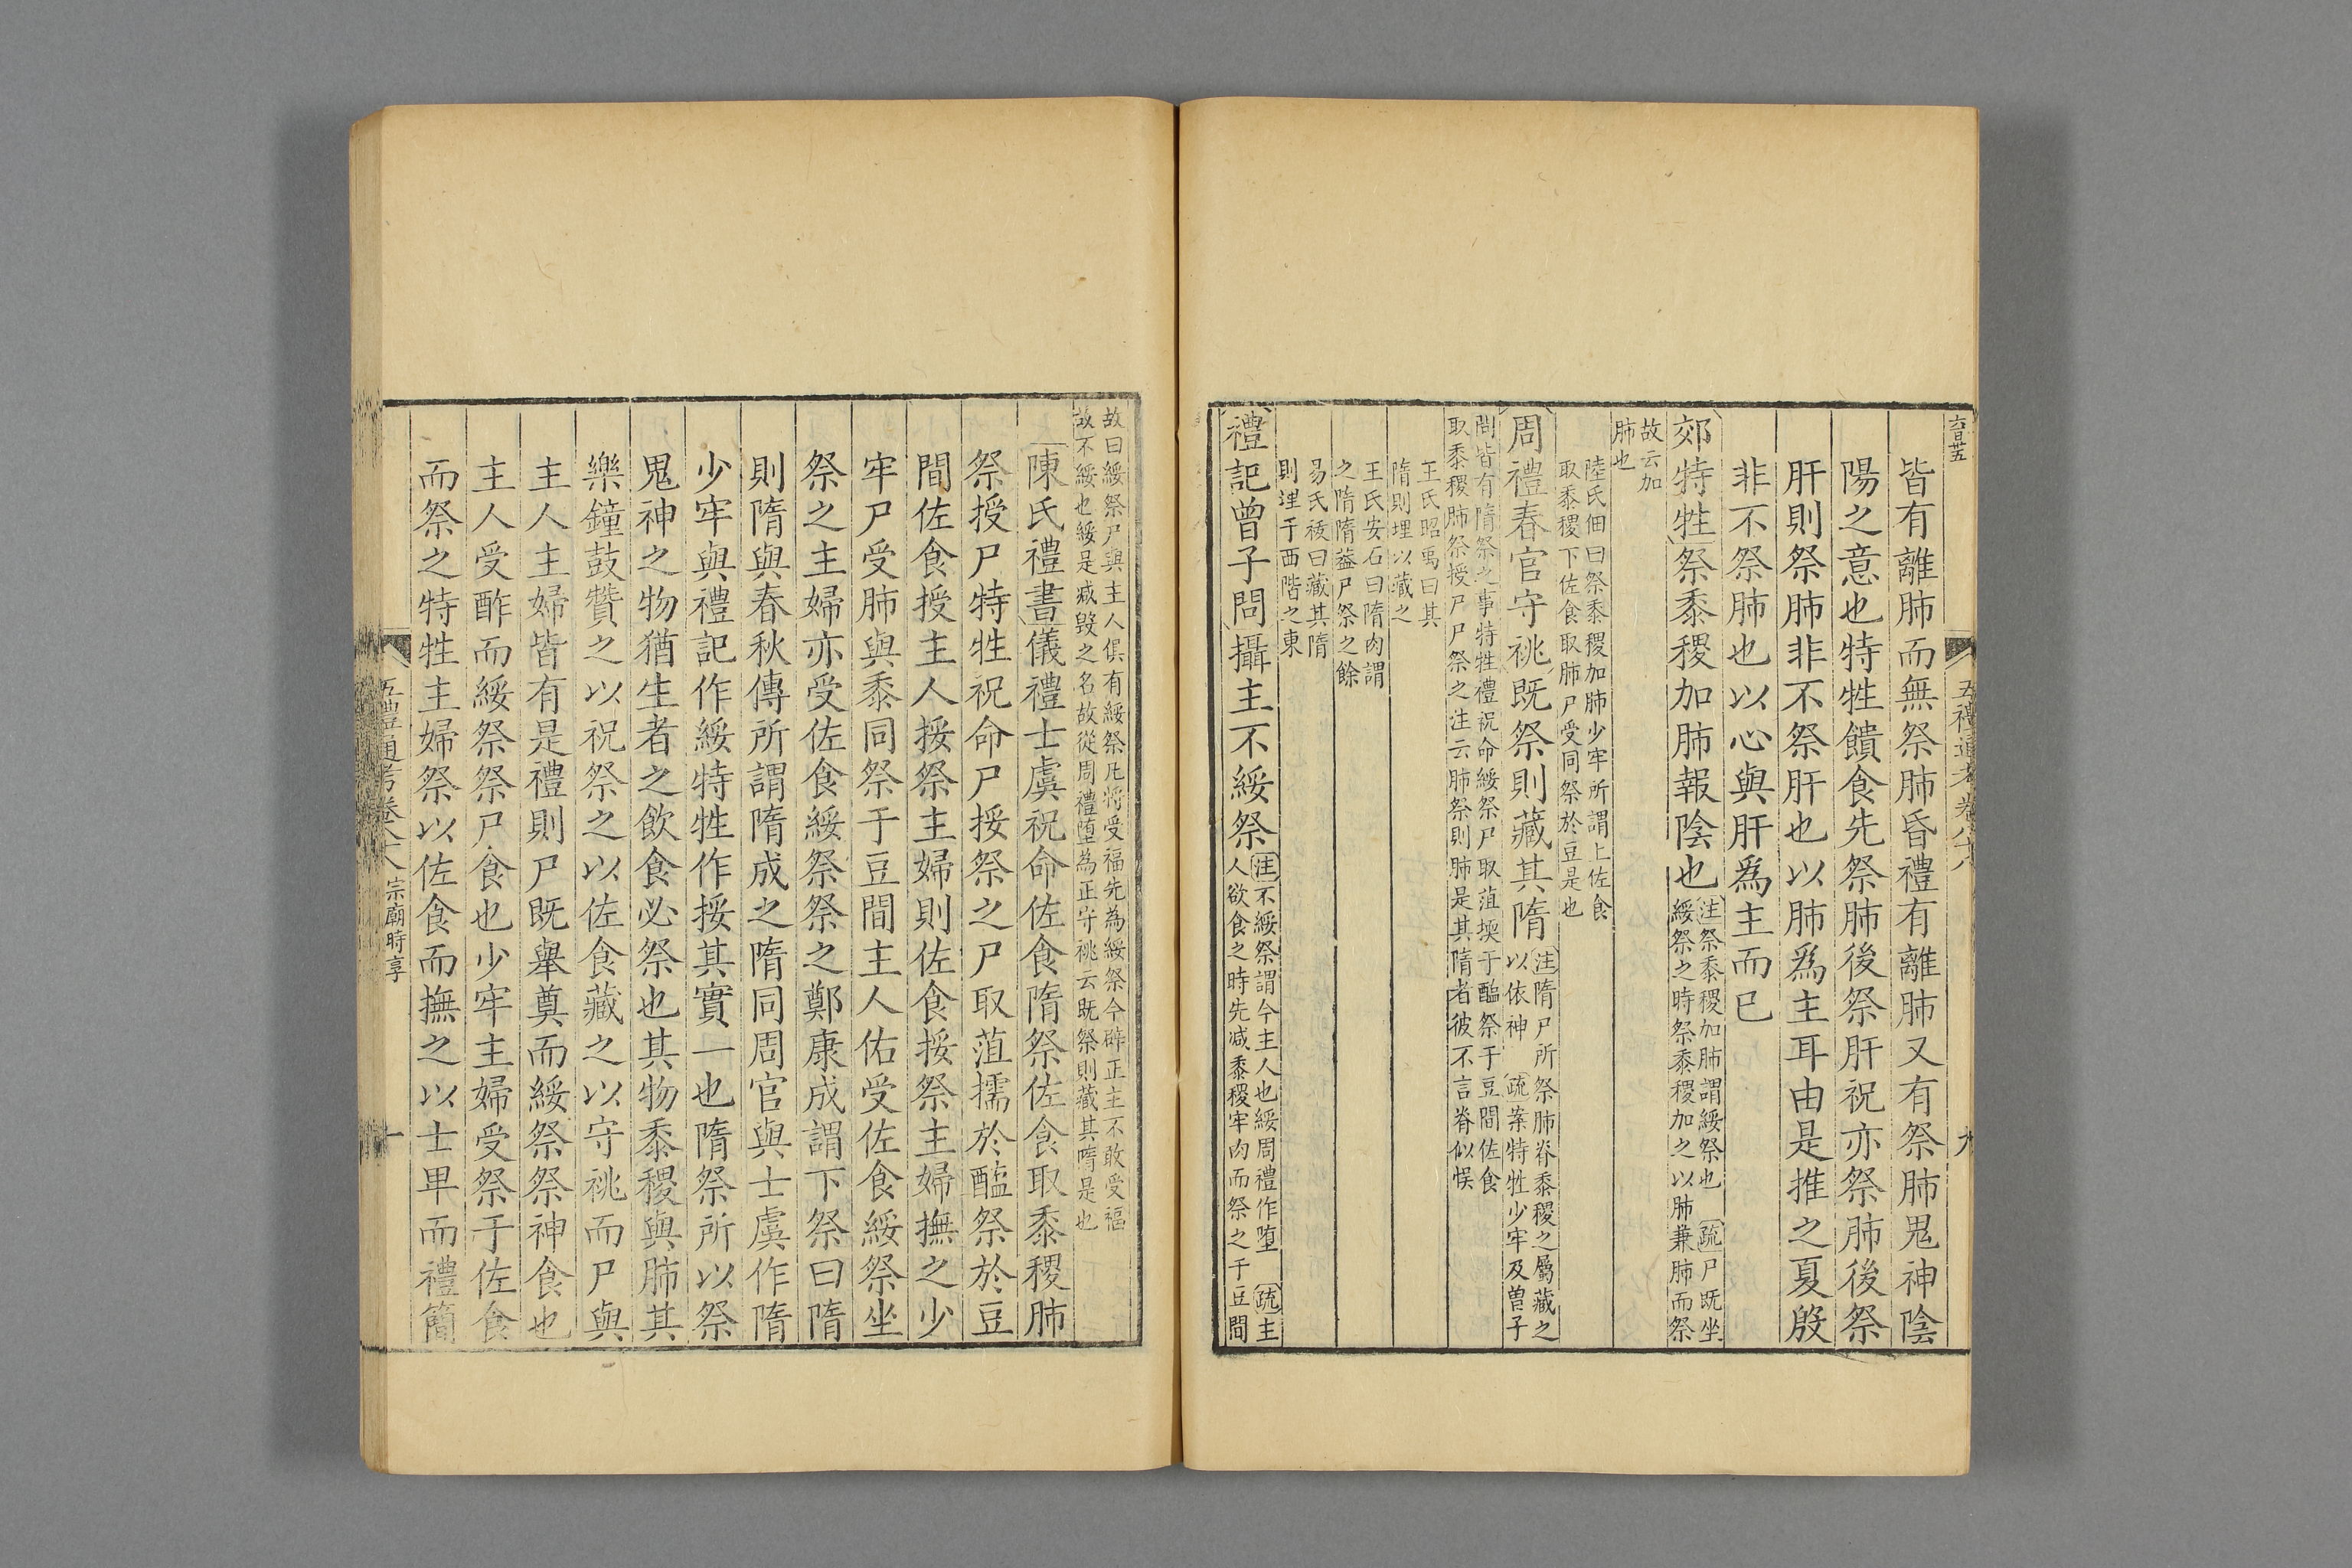 六百廿五
五禮通考卷八十八
九
皆有離肺而無祭肺昏禮有離肺又有祭肺鬼神陰
陽之意也特牲饋食先祭肺後祭肝祝亦祭肺後祭
肝則祭肺非不祭肝也以肺爲主耳由是推之夏殷
非不祭肺也以心與肝爲主而已
郊特牲祭黍稷加肺報陰也
注祭黍稷加肺謂綏祭也 疏尸既坐
綏祭之時祭黍稷加之以肺兼肺而祭
故云加
肺也
陸氏佃曰祭黍稷加肺少牢所謂上佐食
取黍稷下佐食取肺尸受同祭於豆是也
周禮春官守祧既祭則藏其隋
注隋尸所祭肺脊黍稷之屬藏之
以依神 疏案特牲少牢及曾子
問皆有隋祭之事特牲禮祝命綏祭尸取菹㨎于醢祭于豆間佐食
取黍稷肺祭授尸尸祭之注云肺祭則肺是其隋者彼不言脊似悮
王氏昭禹曰其
隋則埋以藏之
王氏安石曰隋肉謂
之隋隋蓋尸祭之餘
易氏祓曰藏其隋
則埋于西階之東
禮記曾子問攝主不綏祭
注不綏祭謂今主人也綏周禮作墮 疏主
人欲食之時先減黍稷牢肉而祭之于豆間
故曰綏祭尸與主人俱有綏祭凡將受福先為綏祭今辟正主不敢受福
故不綏也綏是減毀之名故從周禮墮為正守祧云既祭則藏其隋是也
陳氏禮書儀禮士虞祝命佐食隋祭佐食取黍稷肺
祭授尸特牲祝命尸挼祭之尸取菹擩於醢祭於豆
間佐食授主人挼祭主婦則佐食挼祭主婦撫之少
牢尸受肺與黍同祭于豆間主人佑受佐食綏祭坐
祭之主婦亦受佐食綏祭祭之鄭康成謂下祭曰隋
則隋與春秋傳所謂隋成之隋同周官與士虞作隋
少牢與禮記作綏特牲作挼其實一也隋祭所以祭
鬼神之物猶生者之飲食必祭也其物黍稷與肺其
樂鐘鼓贊之以祝祭之以佐食藏之以守祧而尸與
主人主婦皆有是禮則尸既舉奠而綏祭祭神食也
主人受酢而綏祭祭尸食也少牢主婦受祭于佐食
而祭之特牲主婦祭以佐食而撫之以士卑而禮簡
五禮通考卷八十八 宗廟時享
十